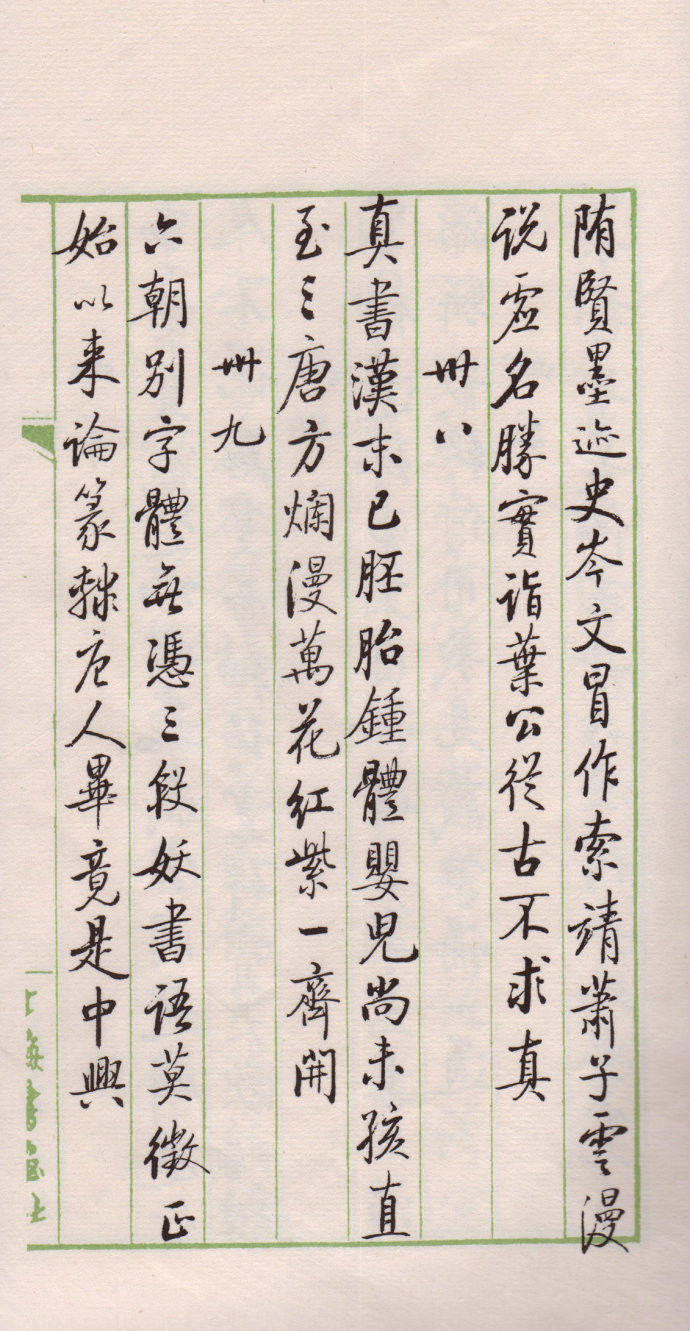 隋賢墨迹史岑文冒作索靖蕭子雲漫
説虛名勝實詣葉公從古不求真
卌八
真書漢末已胚胎鍾體嬰兒尚未孩直
至三唐方爛漫萬花紅紫一齊開
卌九
六朝別字體無憑三段妖書語莫徵正
始以来論篆隸唐人畢竟是中興
上海書畫社